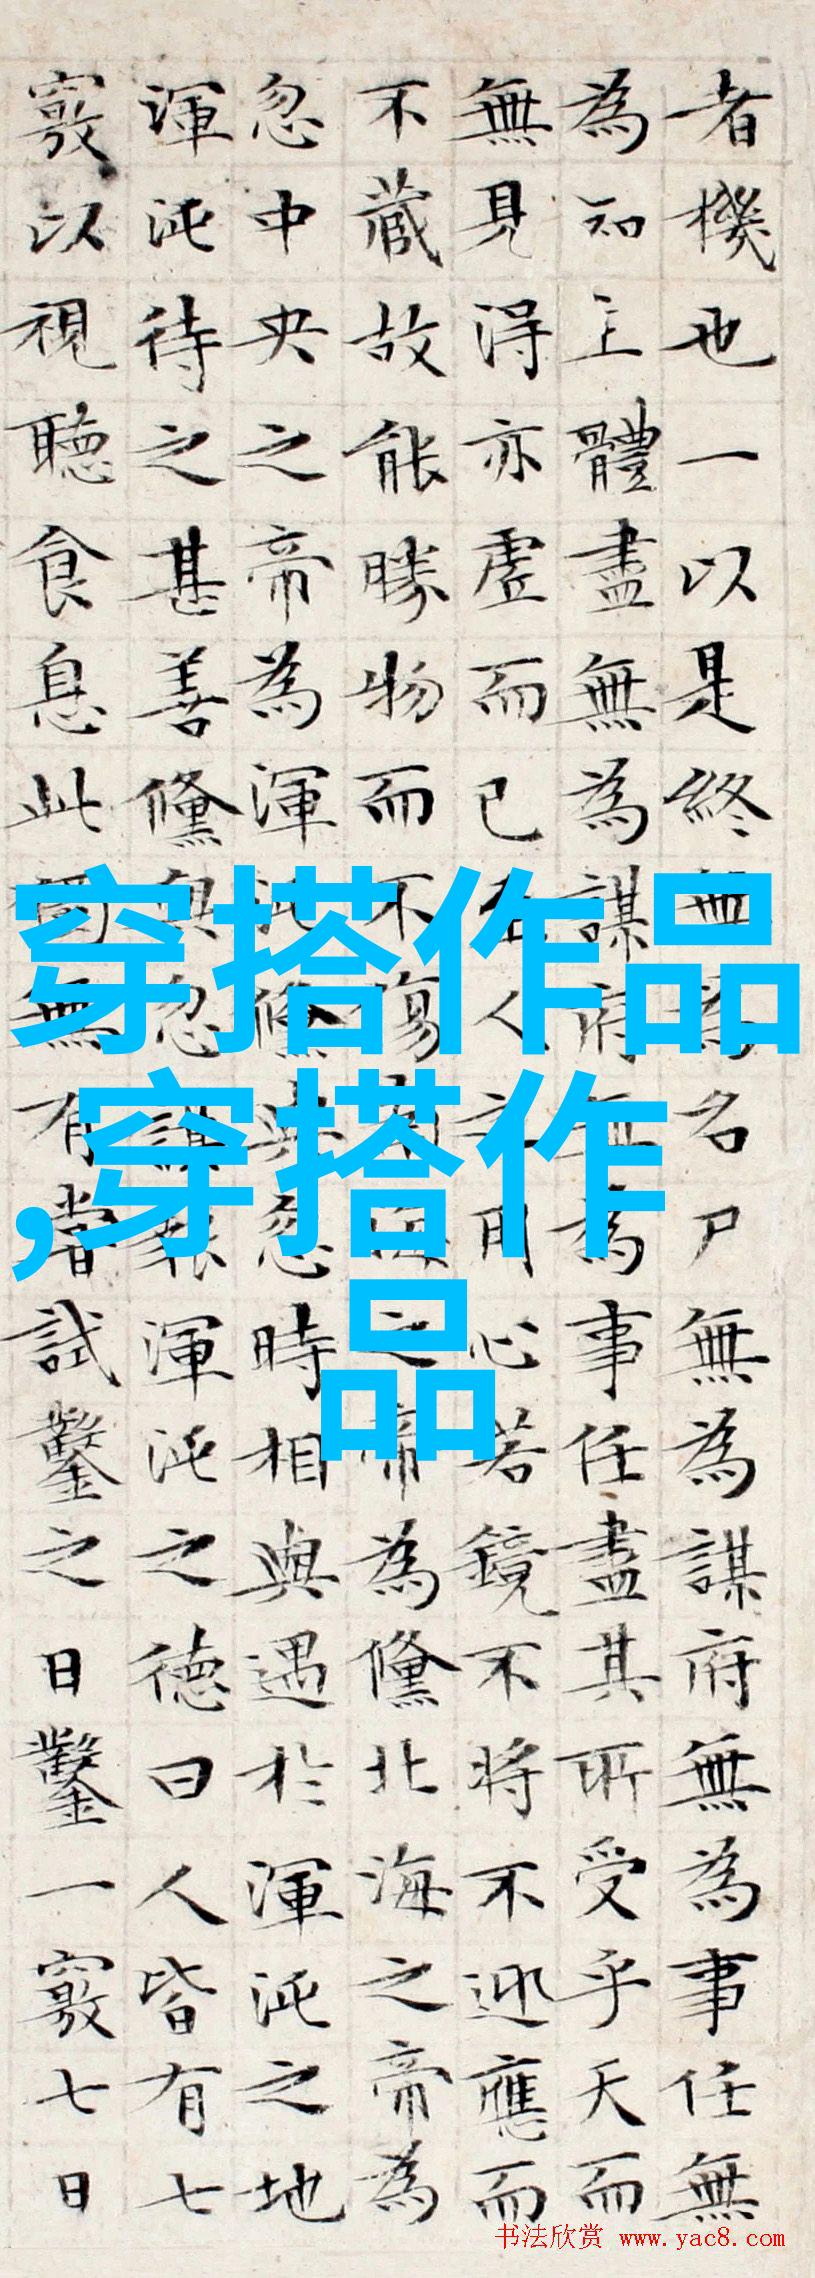 者機也一以是終無為名尸無為謀府無為事任無
為知主體盡無為謀府無為事任盡其所受乎天而
無見得亦虛而已至人之用心若鏡不將不迎應而
不藏故能勝物而不傷南海之帝為儵北海之帝為
忽中央之帝為渾沌儵與忽時相與遇於渾沌之地
渾沌待之甚善儵與忽謀報渾沌之德曰人皆有七
竅以視聽食息此獨無有嘗試鑿之日鑿一竅七日
穿搭作品
,穿搭作
品
书法欣赏 www.yac8.com